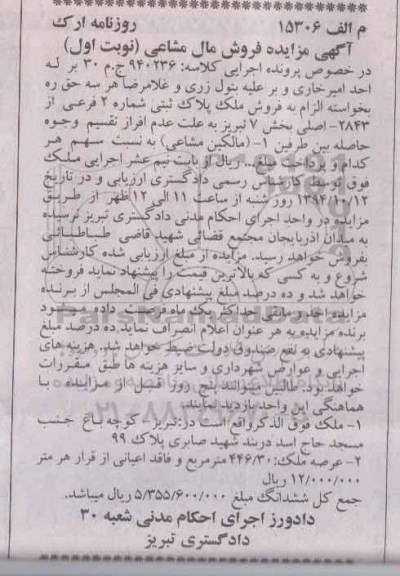 م الف ۱۵۳۰۶ روزنامه ارک
آگهی مزایده فروش مال مشاعی (نوبت اول)
در خصوص پرونده اجرایی کلاسه: ۹۴۰۲۳۶ ج.م ۳۰ بر له
احد امیرخاری و بر علیه بتول زری و غلامرضا هر سه حق ره
بخواسته الزام به فروش ملک پلاک ثبتی شماره ۲ فرعی از
۲۸۴۳- اصلی بخش ۷ تبریز به علت عدم افراز تقسیم وجوه
حاصله بین طرفین ۱- (مالکین مشاعی) به نسبت سهم هر
کدام و پرداخت مبلغ .. ریال از بابت نیم عشر اجرایی ملک
فوق توسط کارشناس رسمی دادگستری ارزیابی و در تاریخ
۱۳۹۴/۱۰/۱۲ روز شنبه از ساعت ۱۱ الی ۱۲ ظهر از طریق
مزایده در واحد اجرای احکام مدنی دادگستری تبریز نرسیده
به میدان آذربایجان مجتمع قضائی شهید قاضی طباطبائی
بفروش خواهد رسید. مزایده از مبلغ ارزیابی شده کارشناس
شروع و به کسی که بالاترین قیمت را پیشنهاد نماید فروخته
خواهد شد و ده درصد مبلغ پیشنهادی فی المجلس از برنده
مزایده اخذ و مابقی حداکثر یک ماه فرصت داده میشود
برنده مزایده به هر عنوان اعلام انصراف نماید ده درصد مبلغ
پیشنهادی به نفع صندوق دولت ضبط خواهد شد. هزینه های
اجرایی و عوارض شهرداری و سایر هزینه ها طبق مقررات
خواهد بود. طالبین میتوانند پنج روز قبل از مزایده با
هماهنگی این واحد بازدید نمایند.
۱- ملک فوق الذکر واقع است در: تبریز - کوچه باغ جنب
مسجد حاج اسد دربند شهید صابری پلاک ۹۹
۲- عرصه ملک: ۴۴۶/۳۰ مترمربع و فاقد اعیانی از قرار هر متر
۱۲/۰۰۰/۰۰۰ ریال
جمع کل ششدانگ مبلغ ۵/۳۵۵/۶۰۰/۰۰۰ ریال میباشد.
دادورز اجرای احکام مدنی شعبه ۳۰
دادگستری تبریز